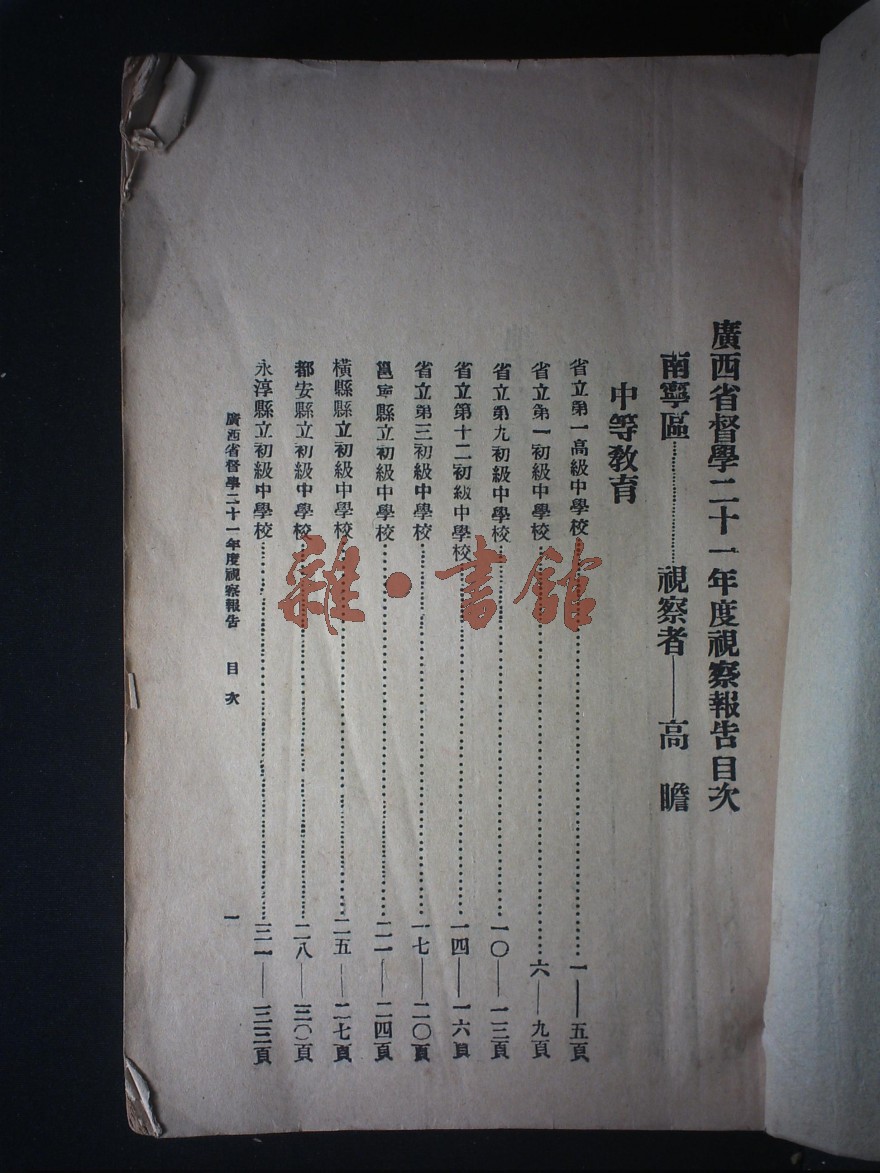 廣西省督學二十一年度視察報告目次
南寧區…………視察者——高　瞻
中等教育
省立第一高級中學校…………一——五頁
省立第一初級中學校…………六——九頁
省立第九初級中學校…………一〇——一三頁
省立第十二初級中學校…………一四——一六頁
省立第三初級中學校…………一七——二〇頁
邕寧縣立初級中學校…………二一——二四頁
橫縣縣立初級中學校…………二五——二七頁
都安縣立初級中學校…………二八——三〇頁
永淳縣立初級中學校…………三一——三三頁
廣西省督學二十一年度視察報告　目次　一
雜·書館